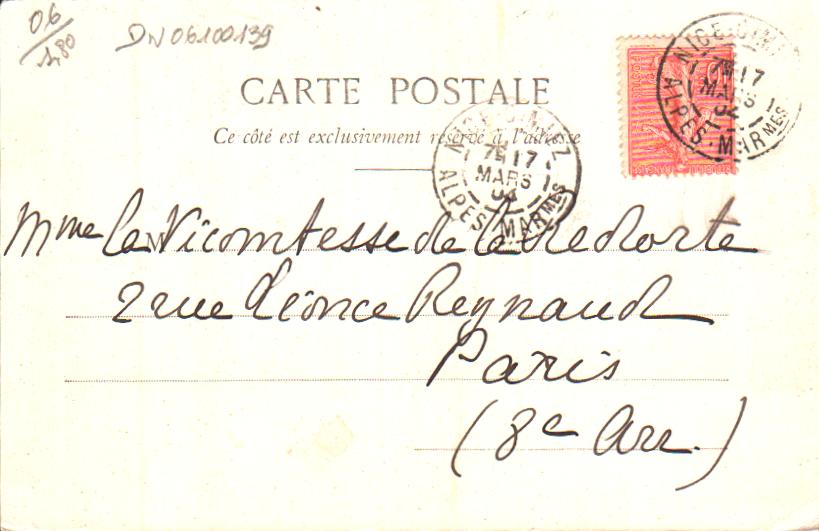 06/180
DN06100139
CARTE POSTALE
Ce côté est exclusivement réservé à l'adresse
NICE-CIMIEZ
7E 17
MARS
ALPES-MARMES
NICE-CIMIEZ
7E 17
MARS
04
ALPES-MARMES
M
Mme la Vicomtesse de la Redorte
2 rue Léonce Reynaud
Paris
(8e Arr.)